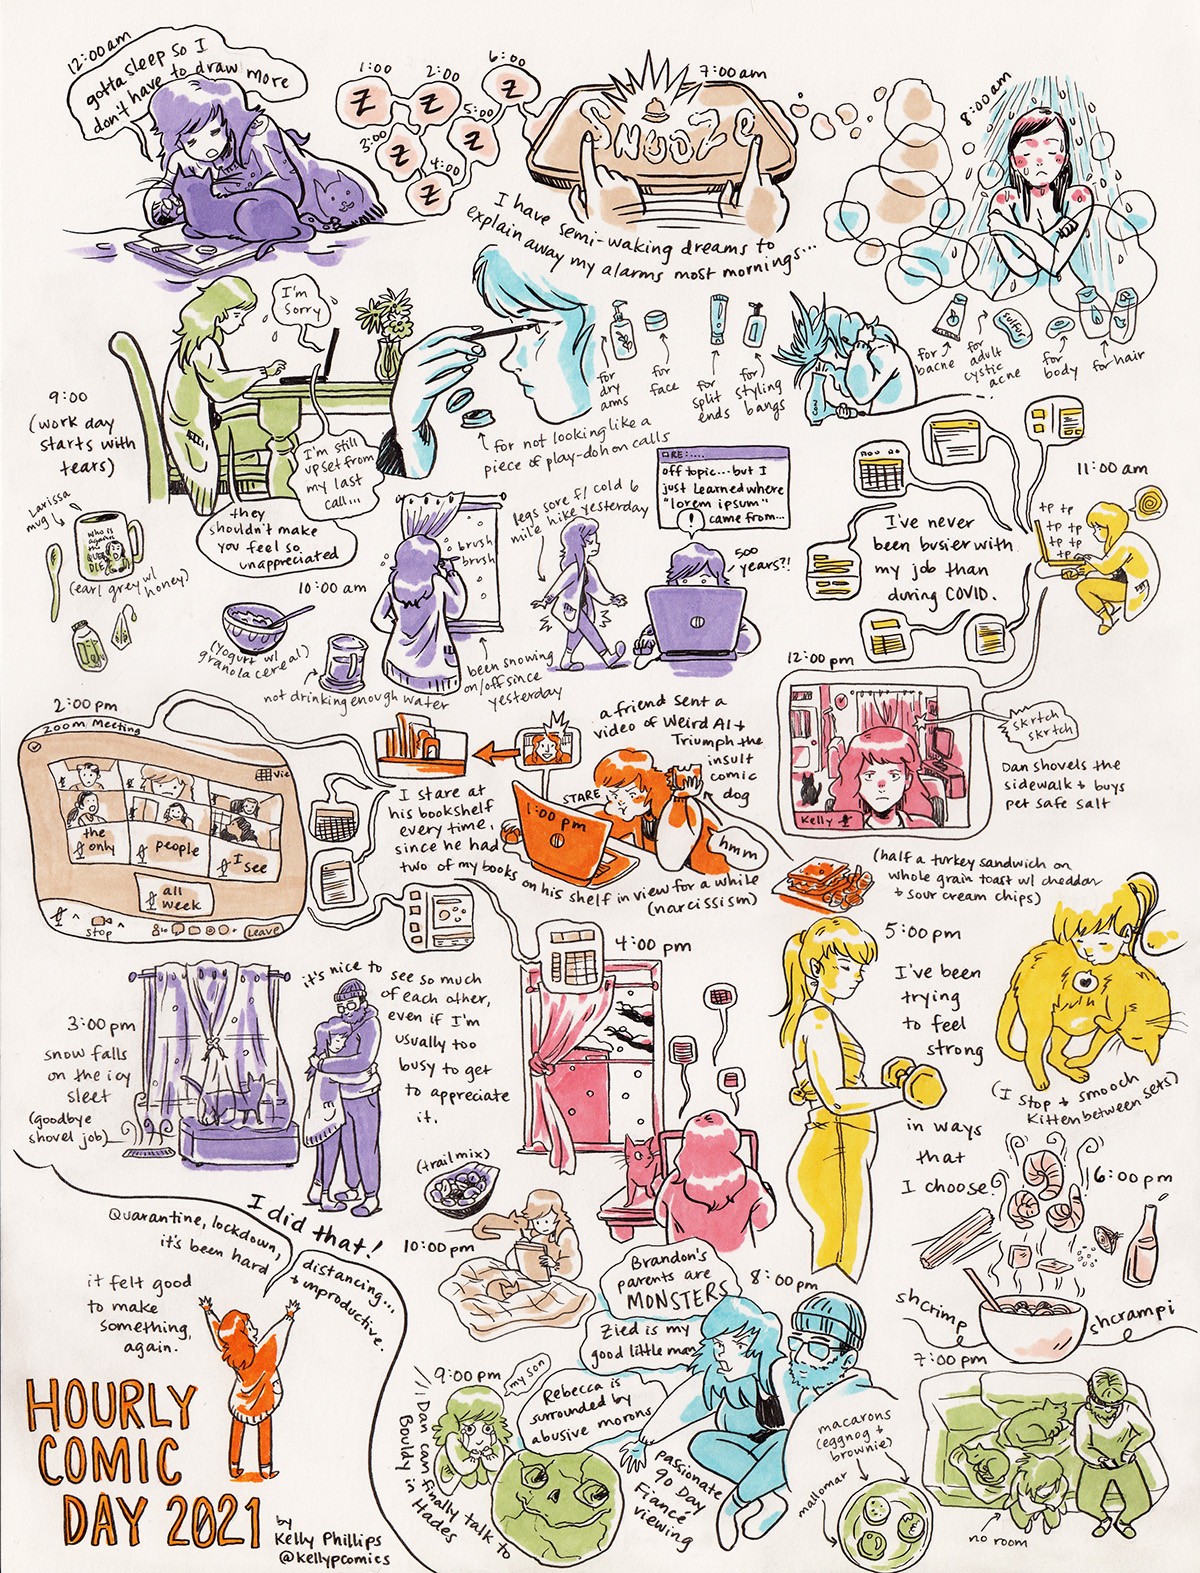 12:00am
gotta sleep so I
don't have to draw more
1:00
2:00
3:00
4:00
5:00
6:00
Z
Z
Z
Z
Z
Z
7:00am
SNOOZE
I have semi-waking dreams to
explain away my alarms most mornings...
8:00am
for bacne
for adult cystic acne
sulfur
for body
for hair
for dry arms
for face
for split ends
for styling bangs
for not looking like a
piece of play-doh on calls
9:00
(work day
starts with
tears)
I'm
sorry
I'm still
upset from
my last
call...
they
shouldn't make
you feel so
unappreciated
Larissa
mug
who is
again
the
QUEE
DIE
(earl grey w/
honey)
10:00am
(yogurt w/
granola cereal)
not drinking enough water
brush
brush
been snowing
on/off since
yesterday
legs sore f/ cold 6
mile hike yesterday
RE:....
off topic...but I
just learned where
"lorem ipsum"
came from...
!
500
years?!
11:00am
I've never
been busier with
my job than
during COVID.
tp tp
tp tp
tp tp
tp
12:00pm
Kelly
skrtch
skrtch
Dan shovels the
sidewalk + buys
pet safe salt
(half a turkey sandwich on
whole grain toast w/ cheddar
+ sour cream chips)
1:00pm
STARE
hmm
a friend sent a
video of Weird Al +
Triumph the
insult
comic
dog
I stare at
his bookshelf
every time,
since he had
two of my books on his shelf in view for a while
(narcissism)
2:00pm
Zoom Meeting
Vie
the
only
people
I
see
all
week
stop
Leave
3:00pm
snow falls
on the icy
sleet
(goodbye
shovel job)
it's nice to see so much
of each other,
even if I'm
usually too
busy to get
to appreciate
it.
4:00pm
(trail mix)
5:00pm
I've been
trying
to feel
strong
in ways
that
I choose.
(I stop + smooch
Kitten between sets)
6:00pm
shcrimp
shcrampi
7:00pm
no room
8:00pm
Brandon's
parents are
MONSTERS
Zied is my
good little man
Rebecca is
surrounded by
abusive morons
passionate
90 Day
Fiancé
viewing
macarons
(eggnog +
brownie)
mallomar
9:00pm
my son
Dan can finally talk to
Bouldy in Hades
10:00pm
I did that!
Quarantine, lockdown, distancing...
it's been hard + unproductive.
it felt good
to make
something,
again.
HOURLY
COMIC
DAY 2021
by
Kelly Phillips
@kellypcomics